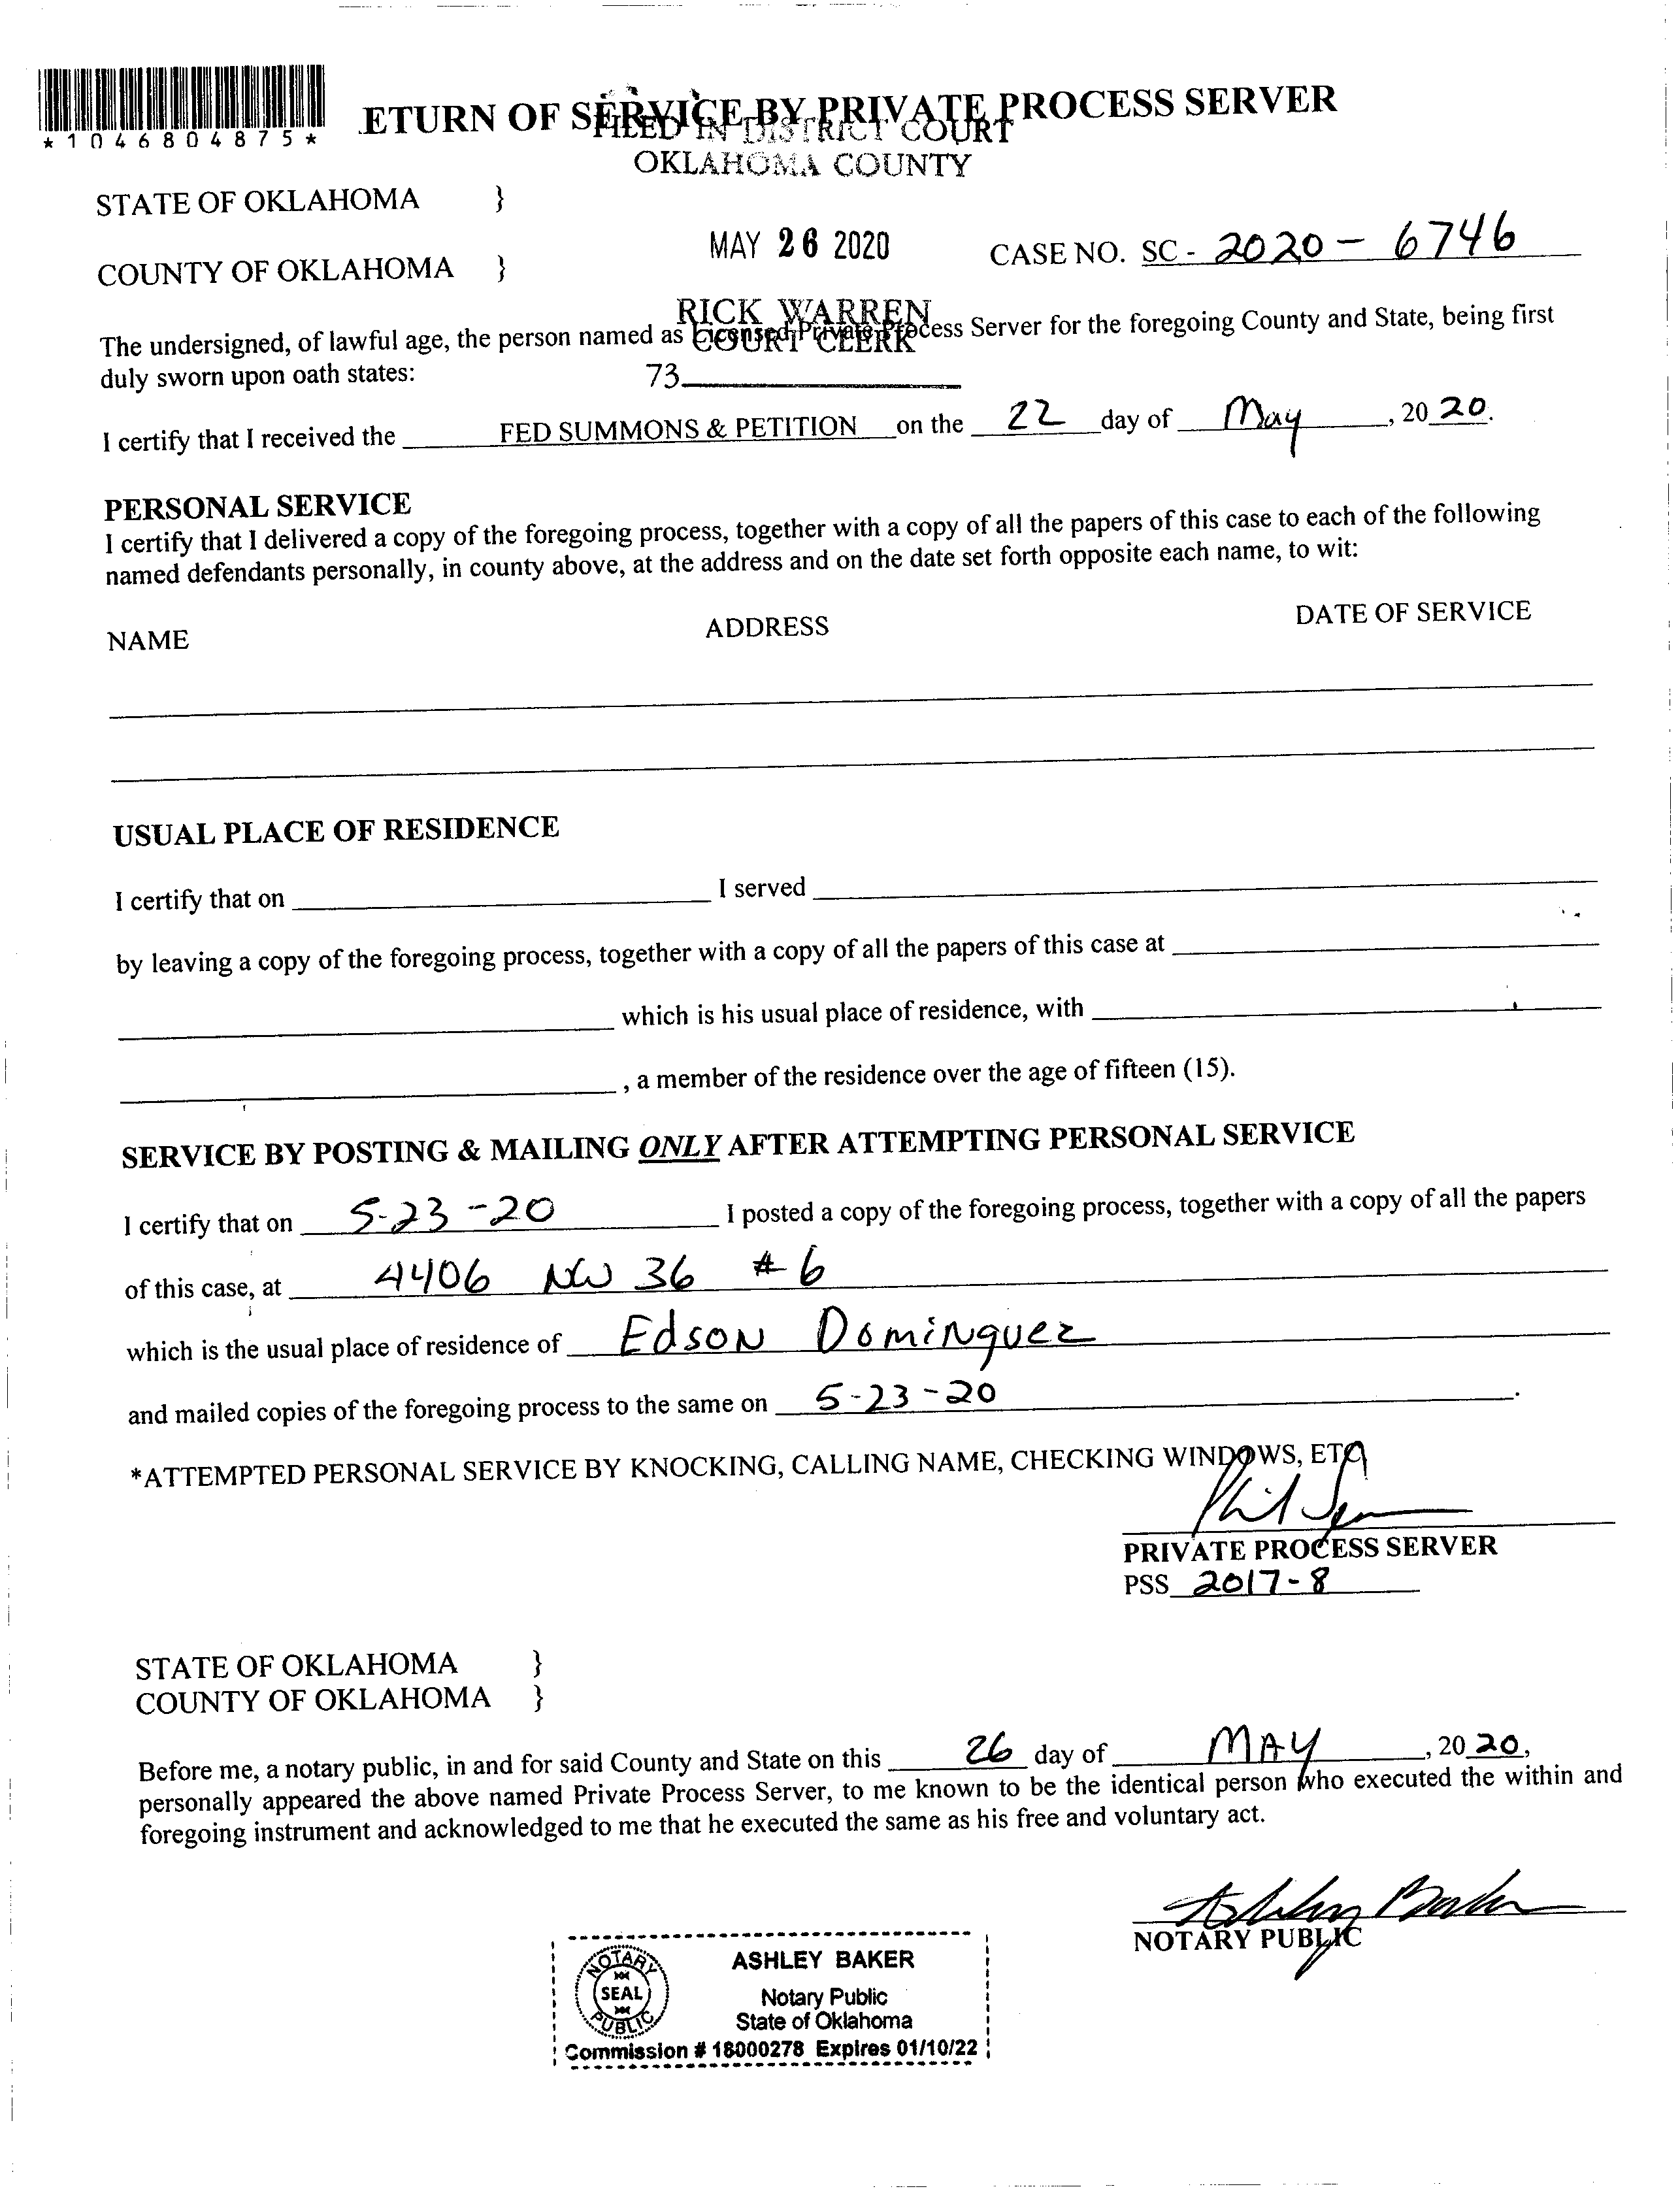 *1046804875*
ETURN OF SERVICE BY PRIVATE PROCESS SERVER
FILED IN DISTRICT COURT
OKLAHOMA COUNTY
STATE OF OKLAHOMA }
MAY 26 2020 CASE NO. SC - 2020 - 6746
COUNTY OF OKLAHOMA }
RICK WARREN
COURT CLERK
The undersigned, of lawful age, the person named as Licensed Private Process Server for the foregoing County and State, being first
duly sworn upon oath states:
73
I certify that I received the FED SUMMONS & PETITION on the 22 day of May, 20 20.
PERSONAL SERVICE
I certify that I delivered a copy of the foregoing process, together with a copy of all the papers of this case to each of the following
named defendants personally, in county above, at the address and on the date set forth opposite each name, to wit:
NAME ADDRESS DATE OF SERVICE
USUAL PLACE OF RESIDENCE
I certify that on I served
by leaving a copy of the foregoing process, together with a copy of all the papers of this case at
which is his usual place of residence, with
, a member of the residence over the age of fifteen (15).
SERVICE BY POSTING & MAILING ONLY AFTER ATTEMPTING PERSONAL SERVICE
I certify that on 5-23-20 I posted a copy of the foregoing process, together with a copy of all the papers
of this case, at 4406 NW 36 #6
which is the usual place of residence of Edson Dominguez
and mailed copies of the foregoing process to the same on 5-23-20.
*ATTEMPTED PERSONAL SERVICE BY KNOCKING, CALLING NAME, CHECKING WINDOWS, ETC
Phil
PRIVATE PROCESS SERVER
PSS 2017-8
STATE OF OKLAHOMA }
COUNTY OF OKLAHOMA }
Before me, a notary public, in and for said County and State on this 26 day of MAY, 20 20,
personally appeared the above named Private Process Server, to me known to be the identical person who executed the within and
foregoing instrument and acknowledged to me that he executed the same as his free and voluntary act.
Ashley Baker
NOTARY PUBLIC
NOTARY PUBLIC
SEAL
ASHLEY BAKER
Notary Public
State of Oklahoma
Commission # 18000278 Expires 01/10/22